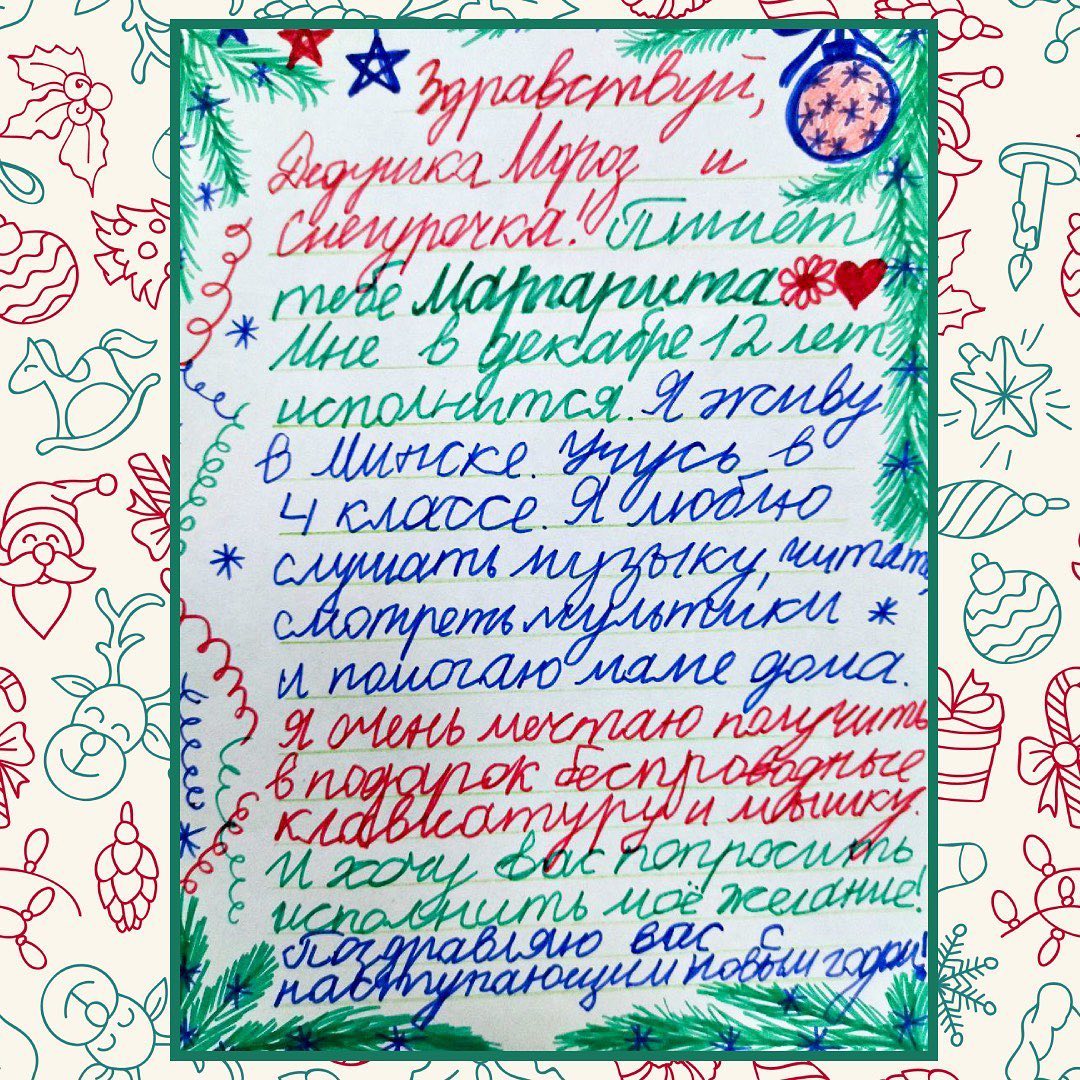 Здравствуй,
Дедушка Мороз и
Снегурочка! Пишет
тебе Маргарита.
Мне в декабре 12 лет
исполнится. Я живу
в Минске. Учусь в
4 классе. Я люблю
слушать музыку, читать,
смотреть мультики
и помогаю маме дома.
Я очень мечтаю получить
в подарок беспроводные
клавиатуру и мышку.
И хочу Вас попросить
исполнить моё желание!
Поздравляю вас с
наступающим новым годом!